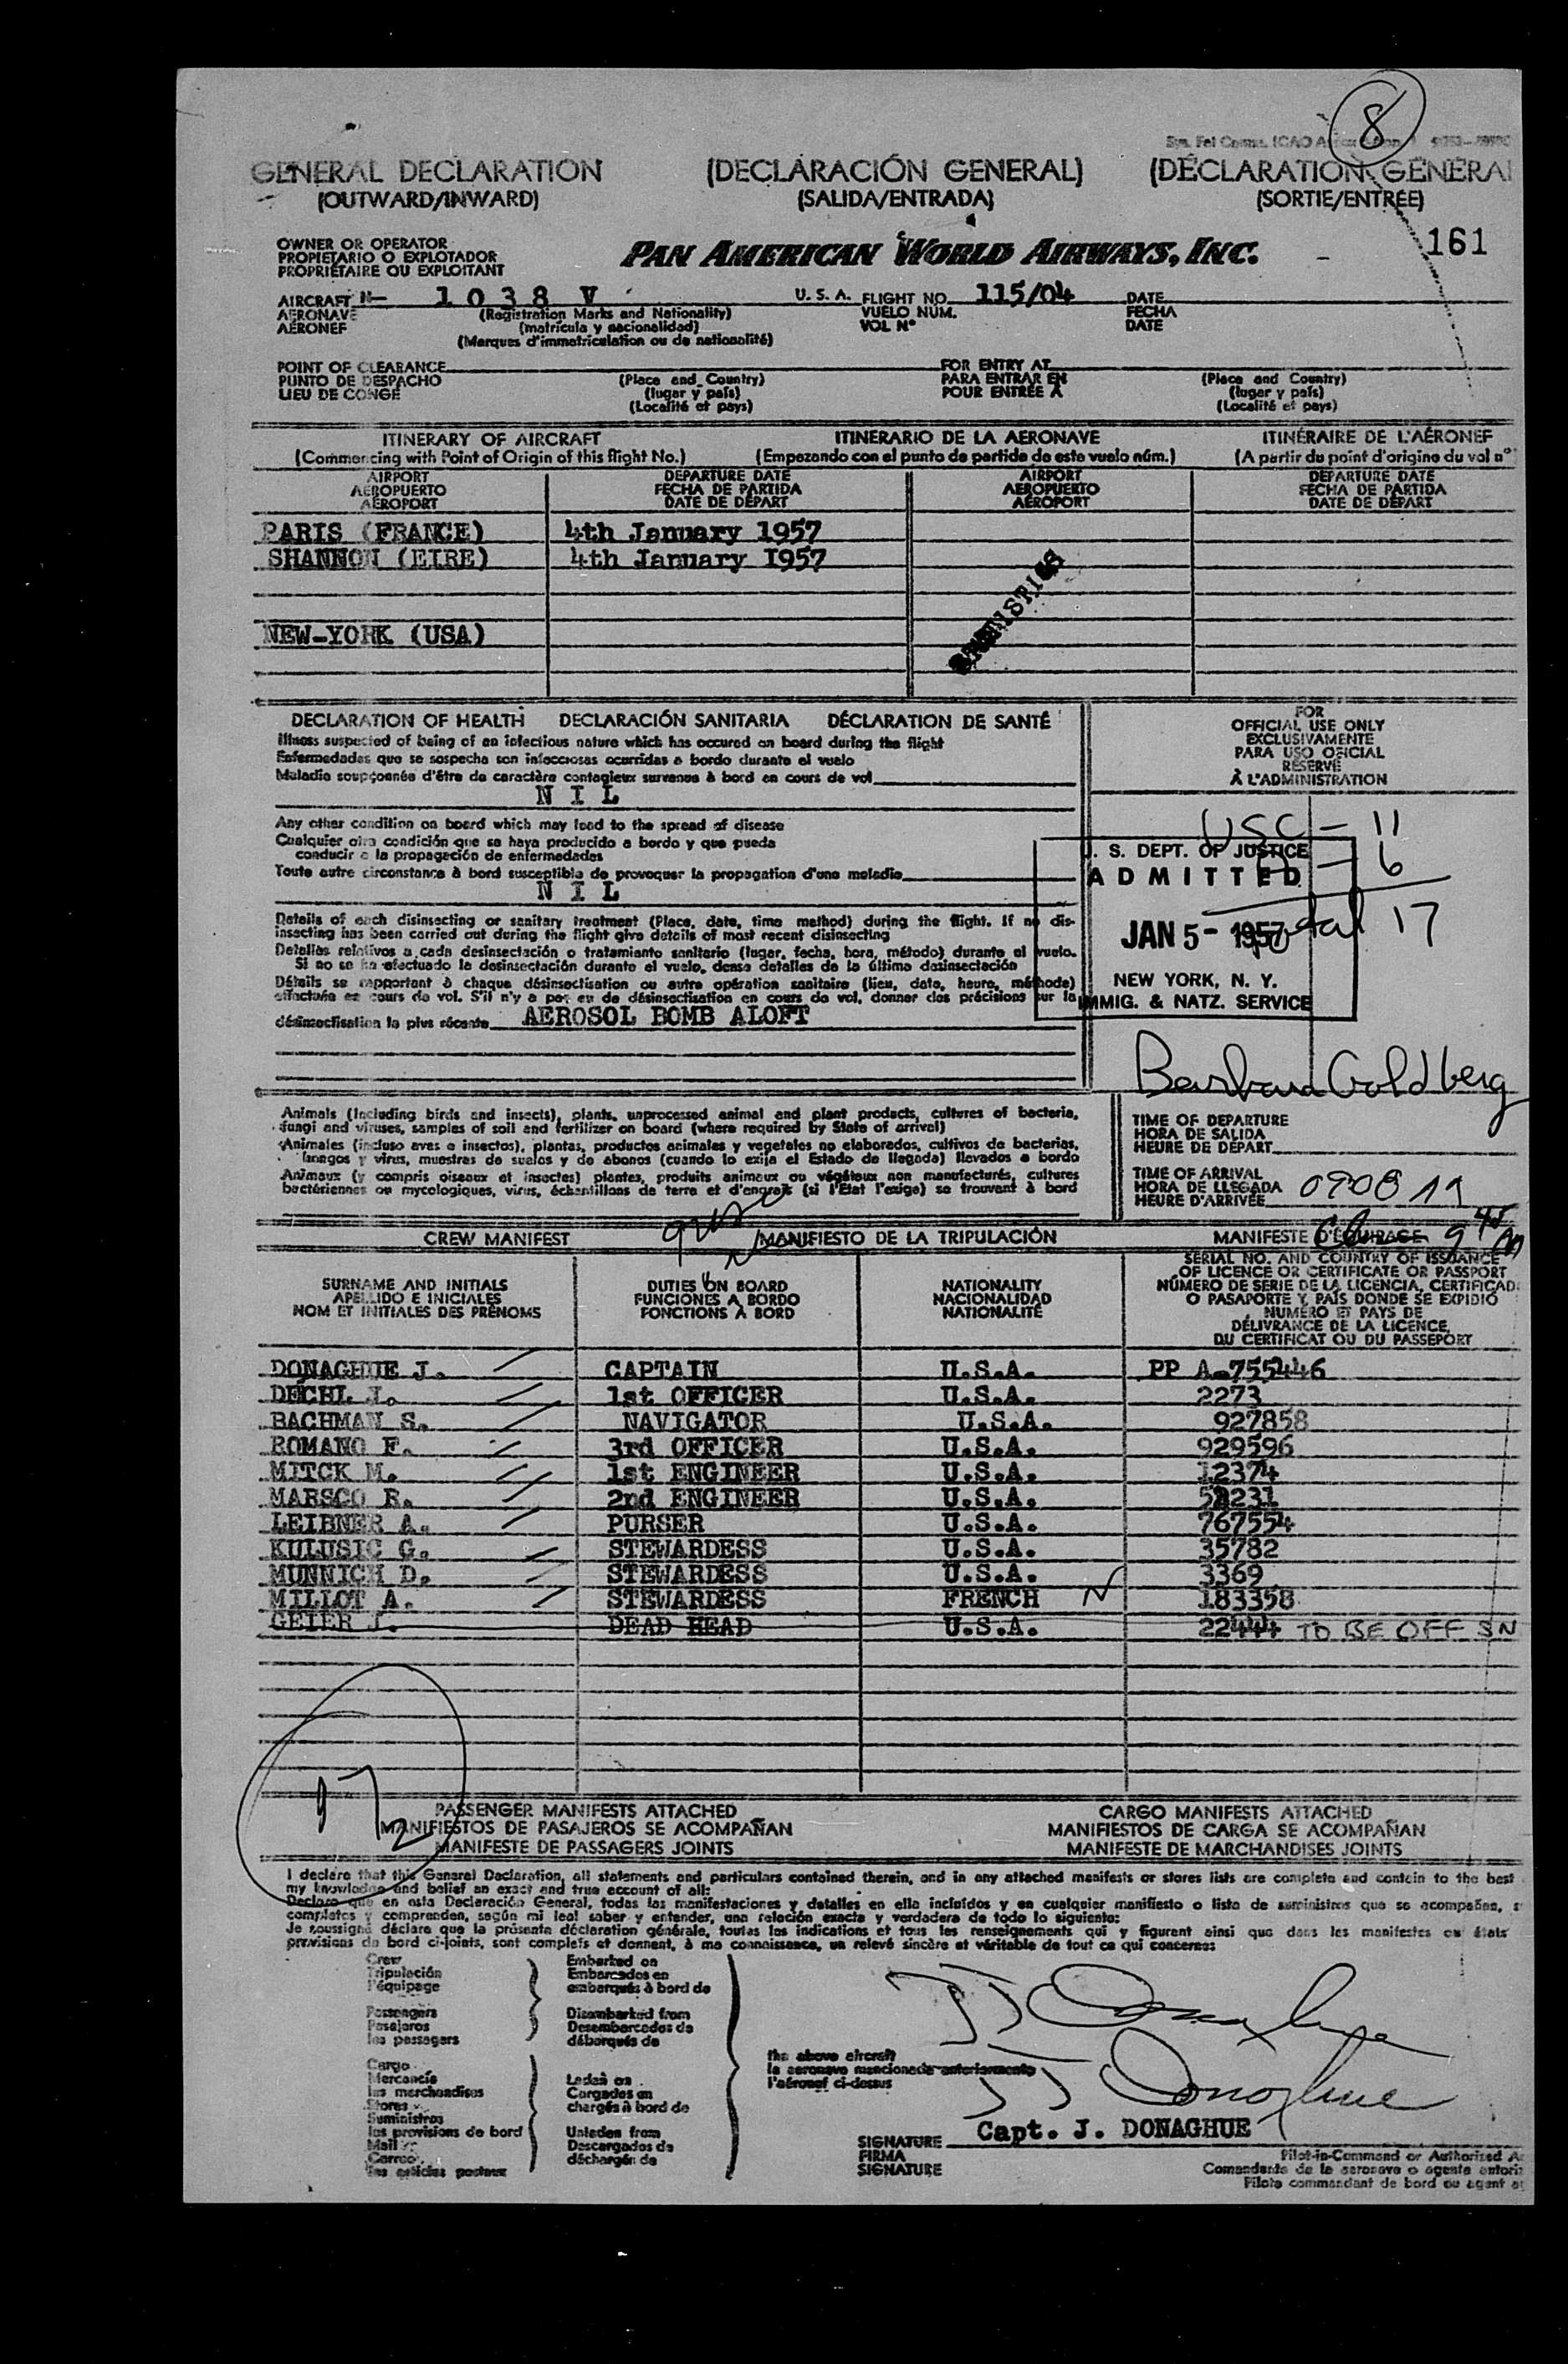 8
GENERAL DECLARATION (DECLARACIÓN GENERAL) (DÉCLARATION GÉNÉRAL
(OUTWARD/INWARD) (SALIDA/ENTRADA) (SORTIE/ENTRÉE)
161
OWNER OR OPERATOR
PROPIETARIO O EXPLOTADOR
PROPRIÉTAIRE OU EXPLOITANT
PAN AMERICAN WORLD AIRWAYS, INC.
AIRCRAFT N- 1038 V U. S. A. FLIGHT NO. 115/04 DATE
AERONAVE (Registration Marks and Nationality) VUELO NÚM. FECHA
AÉRONEF (matrícula y nacionalidad) VOL N° DATE
(Marques d'immatriculation ou de nationalité)
POINT OF CLEARANCE FOR ENTRY AT
PUNTO DE DESPACHO (Place and Country) PARA ENTRAR EN (Place and Country)
LIEU DE CONGÉ (lugar y país) POUR ENTRÉE À (lugar y país)
(Localité et pays) (Localité et pays)
ITINERARY OF AIRCRAFT ITINERARIO DE LA AERONAVE ITINÉRAIRE DE L'AÉRONEF
(Commencing with Point of Origin of this flight No.) (Empezando con el punto de partida de este vuelo núm.) (A partir du point d'origine du vol n°
AIRPORT DEPARTURE DATE AIRPORT DEPARTURE DATE
AEROPUERTO FECHA DE PARTIDA AEROPUERTO FECHA DE PARTIDA
AÉROPORT DATE DE DÉPART AÉROPORT DATE DE DÉPART
PARIS (FRANCE) 4th January 1957
SHANNON (EIRE) 4th January 1957
NEW-YORK (USA)
DECLARATION OF HEALTH DECLARACIÓN SANITARIA DÉCLARATION DE SANTÉ
Illness suspected of being of an infectious nature which has occured on board during the flight
Enfermedades que se sospecha son infecciosas ocurridas a bordo durante el vuelo
Maladie soupçonnée d'être de caractère contagieux survenue à bord en cours de vol
NIL
Any other condition on board which may lead to the spread of disease
Cualquier otra condición que se haya producido a bordo y que pueda
conducir a la propagación de enfermedades
Toute autre circonstance à bord susceptible de provoquer la propagation d'une maladie
NIL
Details of each disinsecting or sanitary treatment (Place, date, time method) during the flight. If no dis-
insecting has been carried out during the flight give details of most recent disinsecting
Detalles relativos a cada desinsectación o tratamiento sanitario (lugar, fecha, hora, método) durante el vuelo.
Si no se ha efectuado la desinsectación durante el vuelo, dense detalles de la última desinsectación
Détails se rapportant à chaque désinsectisation ou autre opération sanitaire (lieu, date, heure, méthode)
effectuée en cours de vol. S'il n'y a pas eu de désinsectisation en cours de vol, donner des précisions sur la
désinsectisation la plus récente AEROSOL BOMB ALOFT
FOR
OFFICIAL USE ONLY
EXCLUSIVAMENTE
PARA USO OFICIAL
RÉSERVÉ
À L'ADMINISTRATION
USC - 11
- 6
Total 17
U. S. DEPT. OF JUSTICE
ADMITTED
JAN 5 - 1957
NEW YORK, N. Y.
IMMIG. & NATZ. SERVICE
Barbara Goldberg
Animals (including birds and insects), plants, unprocessed animal and plant products, cultures of bacteria,
fungi and viruses, samples of soil and fertilizer on board (where required by State of arrival)
Animales (incluso aves e insectos), plantas, productos animales y vegetales no elaborados, cultivos de bacterias,
hongos y virus, muestras de suelos y de abonos (cuando lo exija el Estado de llegada) llevados a bordo
Animaux (y compris oiseaux et insectes) plantes, produits animaux ou végétaux non manufacturés, cultures
bactériennes ou mycologiques, virus, échantillons de terre et d'engrais (si l'État l'exige) se trouvant à bord
TIME OF DEPARTURE
HORA DE SALIDA
HEURE DE DÉPART
TIME OF ARRIVAL
HORA DE LLEGADA
HEURE D'ARRIVÉE
CREW MANIFEST MANIFIESTO DE LA TRIPULACIÓN MANIFESTE D'ÉQUIPAGE
SURNAME AND INITIALS
APELLIDO E INICIALES
NOM ET INITIALES DES PRÉNOMS
DUTIES ON BOARD
FUNCIONES A BORDO
FONCTIONS À BORD
NATIONALITY
NACIONALIDAD
NATIONALITÉ
SERIAL NO. AND COUNTRY OF ISSUANCE
OF LICENCE OR CERTIFICATE OR PASSPORT
NÚMERO DE SERIE DE LA LICENCIA, CERTIFICAD
O PASAPORTE Y PAÍS DONDE SE EXPIDIÓ
NUMÉRO ET PAYS DE
DÉLIVRANCE DE LA LICENCE,
DU CERTIFICAT OU DU PASSEPORT
DONAGHUE J. CAPTAIN U.S.A. PP A-755446
DECHL J. 1st OFFICER U.S.A. 2273
BACHMAN S. NAVIGATOR U.S.A. 927858
ROMANO F. 3rd OFFICER U.S.A. 929596
MITCK M. 1st ENGINEER U.S.A. 12374
MARSCO R. 2nd ENGINEER U.S.A.
LEIBNER A. PURSER U.S.A. 767554
KULUSIC G. STEWARDESS U.S.A. 35782
MUNNICH D. STEWARDESS U.S.A. 3369
MILLOT A. STEWARDESS FRENCH N 183358
GEIER J. DEAD HEAD U.S.A. 22444 TO BE OFF SN
PASSENGER MANIFESTS ATTACHED CARGO MANIFESTS ATTACHED
MANIFIESTOS DE PASAJEROS SE ACOMPAÑAN MANIFIESTOS DE CARGA SE ACOMPAÑAN
MANIFESTE DE PASSAGERS JOINTS MANIFESTE DE MARCHANDISES JOINTS
I declare that this General Declaration, all statements and particulars contained therein, and in any attached manifests or stores lists are complete and contain to the best
my knowledge and belief an exact and true account of all:
Declaro que en esta Declaración General, todas las manifestaciones y detalles en ella incluídos y en cualquier manifiesto o lista de suministros que se acompañan, s
completos y comprenden, según mi leal saber y entender, una relación exacta y verdadera de todo lo siguiente:
Je soussigné déclare que la présente déclaration générale, toutes les indications et tous les renseignements qui y figurent ainsi que dans les manifestes ou états
provisions de bord ci-joints, sont complets et donnent, à ma connaissance, un relevé sincère et véritable de tout ce qui concerne:
Crew
Tripulación
l'équipage
Passengers
Pasajeros
les passagers
Embarked on
Embarcados en
embarqués à bord de
Disembarked from
Desembarcados de
débarqués de
Cargo
Mercancía
les marchandises
Stores
Suministros
les provisions de bord
Mail
Correo
les articles postaux
Laden on
Cargados en
chargés à bord de
Unladen from
Descargados de
déchargés de
the above aircraft
la aeronave mencionada anteriormente
l'aéronef ci-dessus
JJ Donaghue
JJ Donaghue
SIGNATURE Capt. J. DONAGHUE
FIRMA
SIGNATURE
Pilot-in-Command or Authorized A
Comandante de la aeronave o agente autoriz
Pilote commandant de bord ou agent